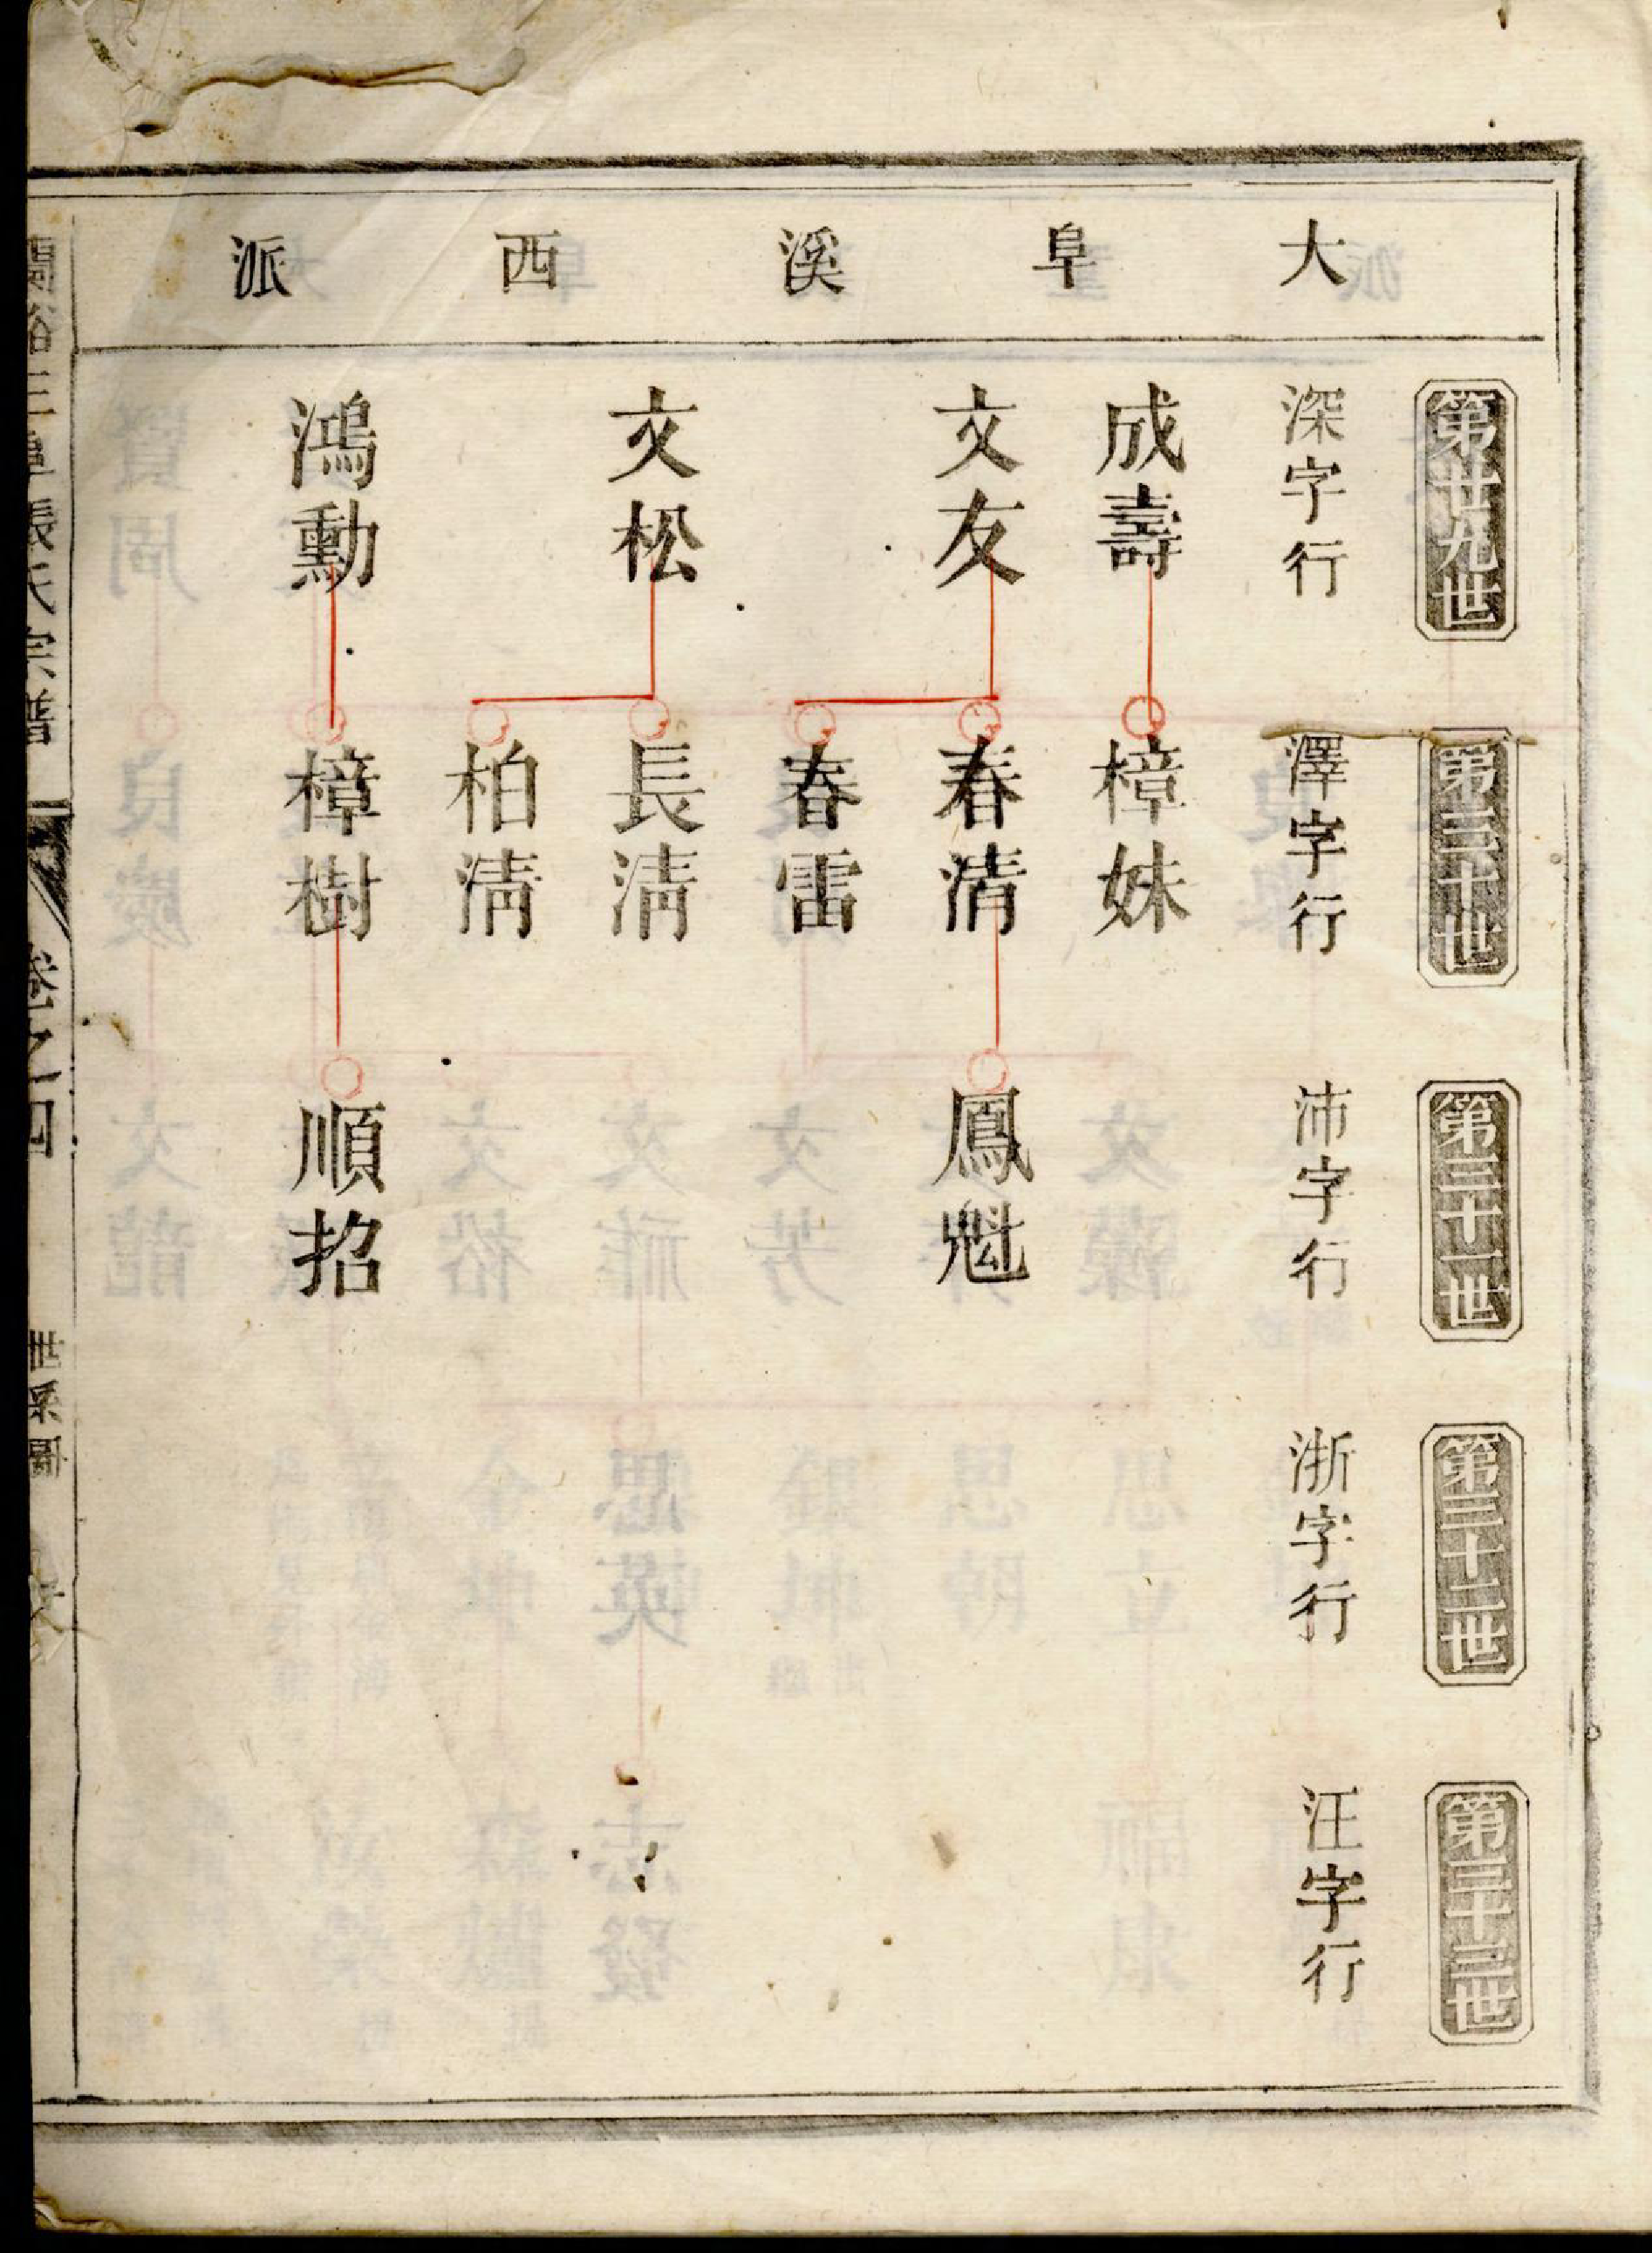 大阜溪西派
第廿九世
深字行
成壽
文友
文松
鴻勳
第三十世
澤字行
樟妹
春清
春雷
長清
柏清
樟樹
第三十一世
沛字行
鳳魁
順招
第三十二世
浙字行
第三十三世
汪字行
張氏宗譜
卷之四
世系圖